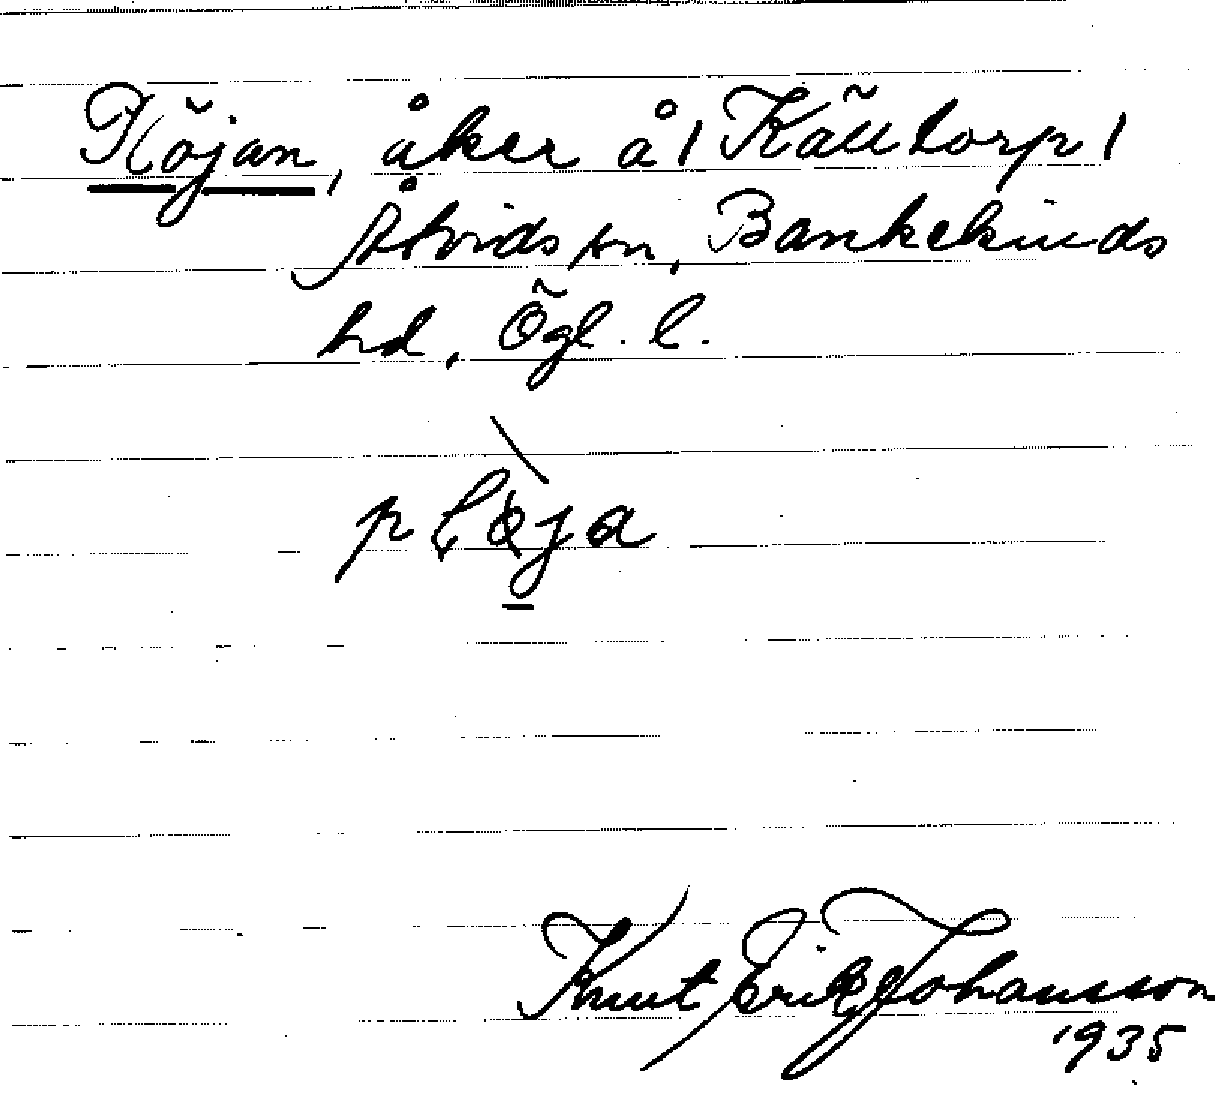 Plöjan, åker å 1 Källtorp 1
Åtvids sn, Bankekinds
hd, Ögl. l.
pløja
Knut Erik Johansson
1935